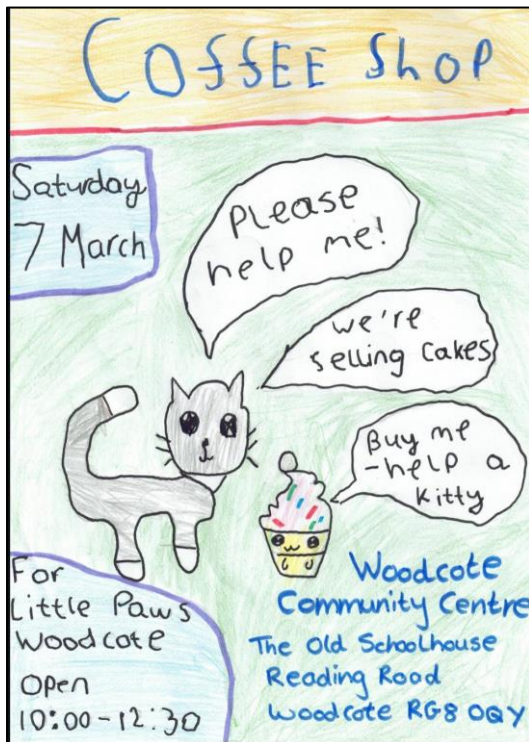 Coffee Shop
Saturday
7 March
Please
help me!
we're
selling cakes
Buy me
-help a
kitty
For
Little Paws
Woodcote
Open
10:00-12:30
Woodcote
Community Centre
The Old Schoolhouse
Reading Road
Woodcote RG8 0QY